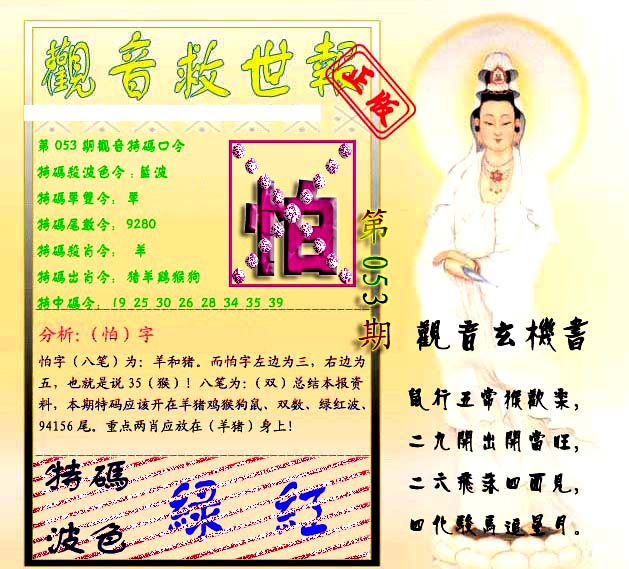 觀音救世報
正版
第 053 期觀音特碼口令
特碼殺波色令：藍波
特碼單雙令：單
特碼尾數令：9280
特碼殺肖令：羊
特碼出肖令：猪羊鷄猴狗
特中碼令：19 25 30 26 28 34 35 39
怕
第 053 期
分析:（怕）字
怕字（八笔）为：羊和猪。而怕字左边为三，右边为
五，也就是说 35（猴）！八笔为：（双）总结本报资
料，本期特码应该开在羊猪鸡猴狗鼠、双数、绿红波、
94156 尾。重点两肖应放在（羊猪）身上！
特碼
波色
綠 紅
觀音玄機書
鼠行五常猴歡樂，
二九開出開當旺，
二六飛落四面見，
四化駿馬追星月。